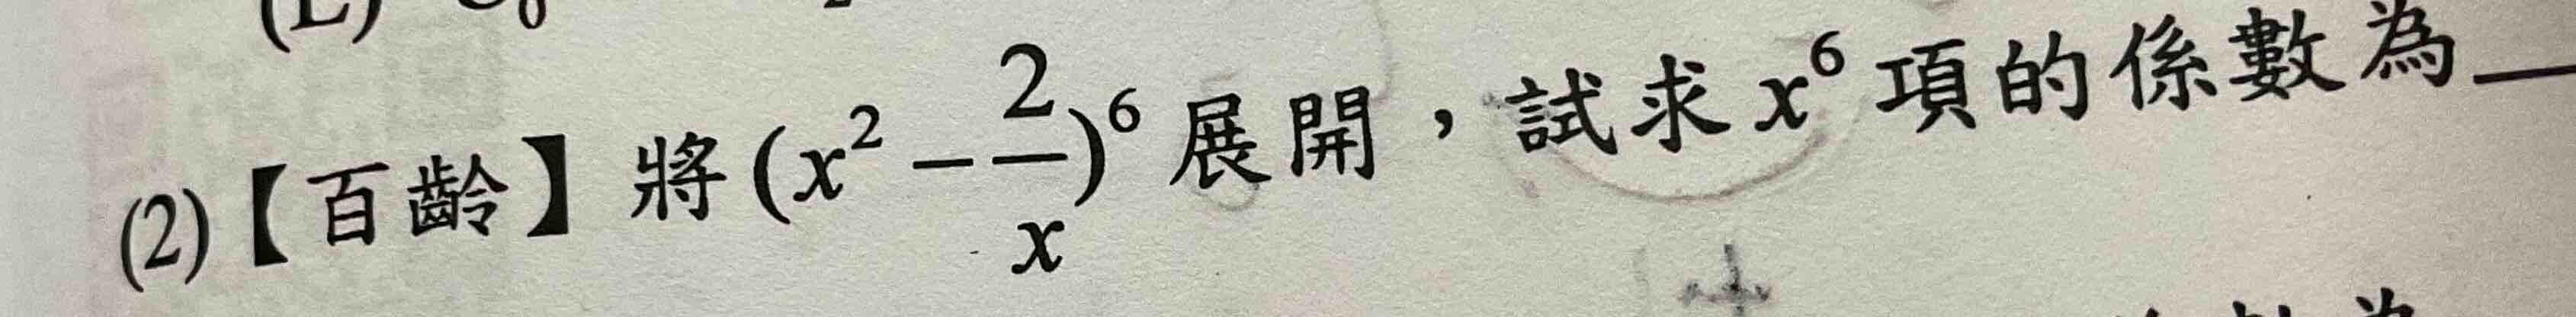 (2)【百齡】將 (x² − 2/x)⁶ 展開，試求 x⁶ 項的係數為＿